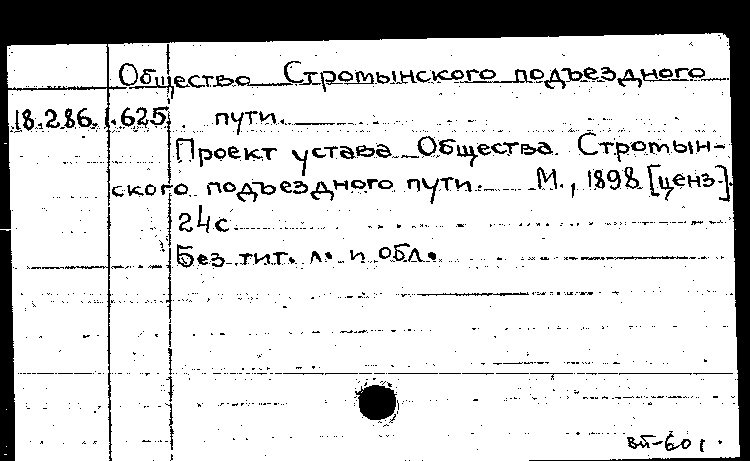 Общество Стромынского подъездного
18.286.1.625. пути.
Проект устава Общества Стромын-
ского подъездного пути. М., 1898 [ценз.].
24с.
Без тит. л. и обл.
вп-601.